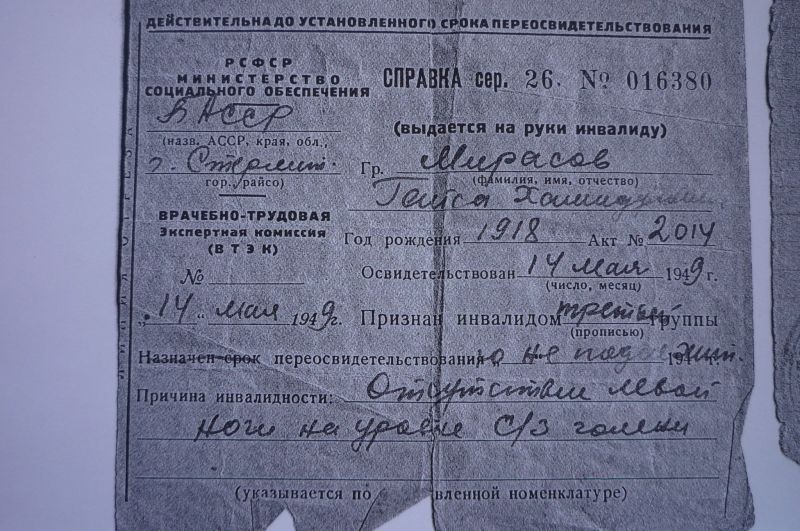 ДЕЙСТВИТЕЛЬНА ДО УСТАНОВЛЕННОГО СРОКА ПЕРЕОСВИДЕТЕЛЬСТВОВАНИЯ
РСФСР
МИНИСТЕРСТВО
СОЦИАЛЬНОГО ОБЕСПЕЧЕНИЯ
БАССР
(назв. АССР, края, обл.,
г. Стерлит.
гор., райсо)
ВРАЧЕБНО-ТРУДОВАЯ
Экспертная комиссия
(ВТЭК)
№
"14" мая 1949г.
СПРАВКА сер. 26. № 016380
(выдается на руки инвалиду)
Гр. Мирасов
(фамилия, имя, отчество)
Год рождения 1918 Акт № 2014
Освидетельствован 14 мая 1949 г.
(число, месяц)
Признан инвалидом третьей группы
(прописью)
Назначен срок переосвидетельствования не
Причина инвалидности: Отсутствие левой
ноги на уровне с/3 голени
(указывается по вленной номенклатуре)